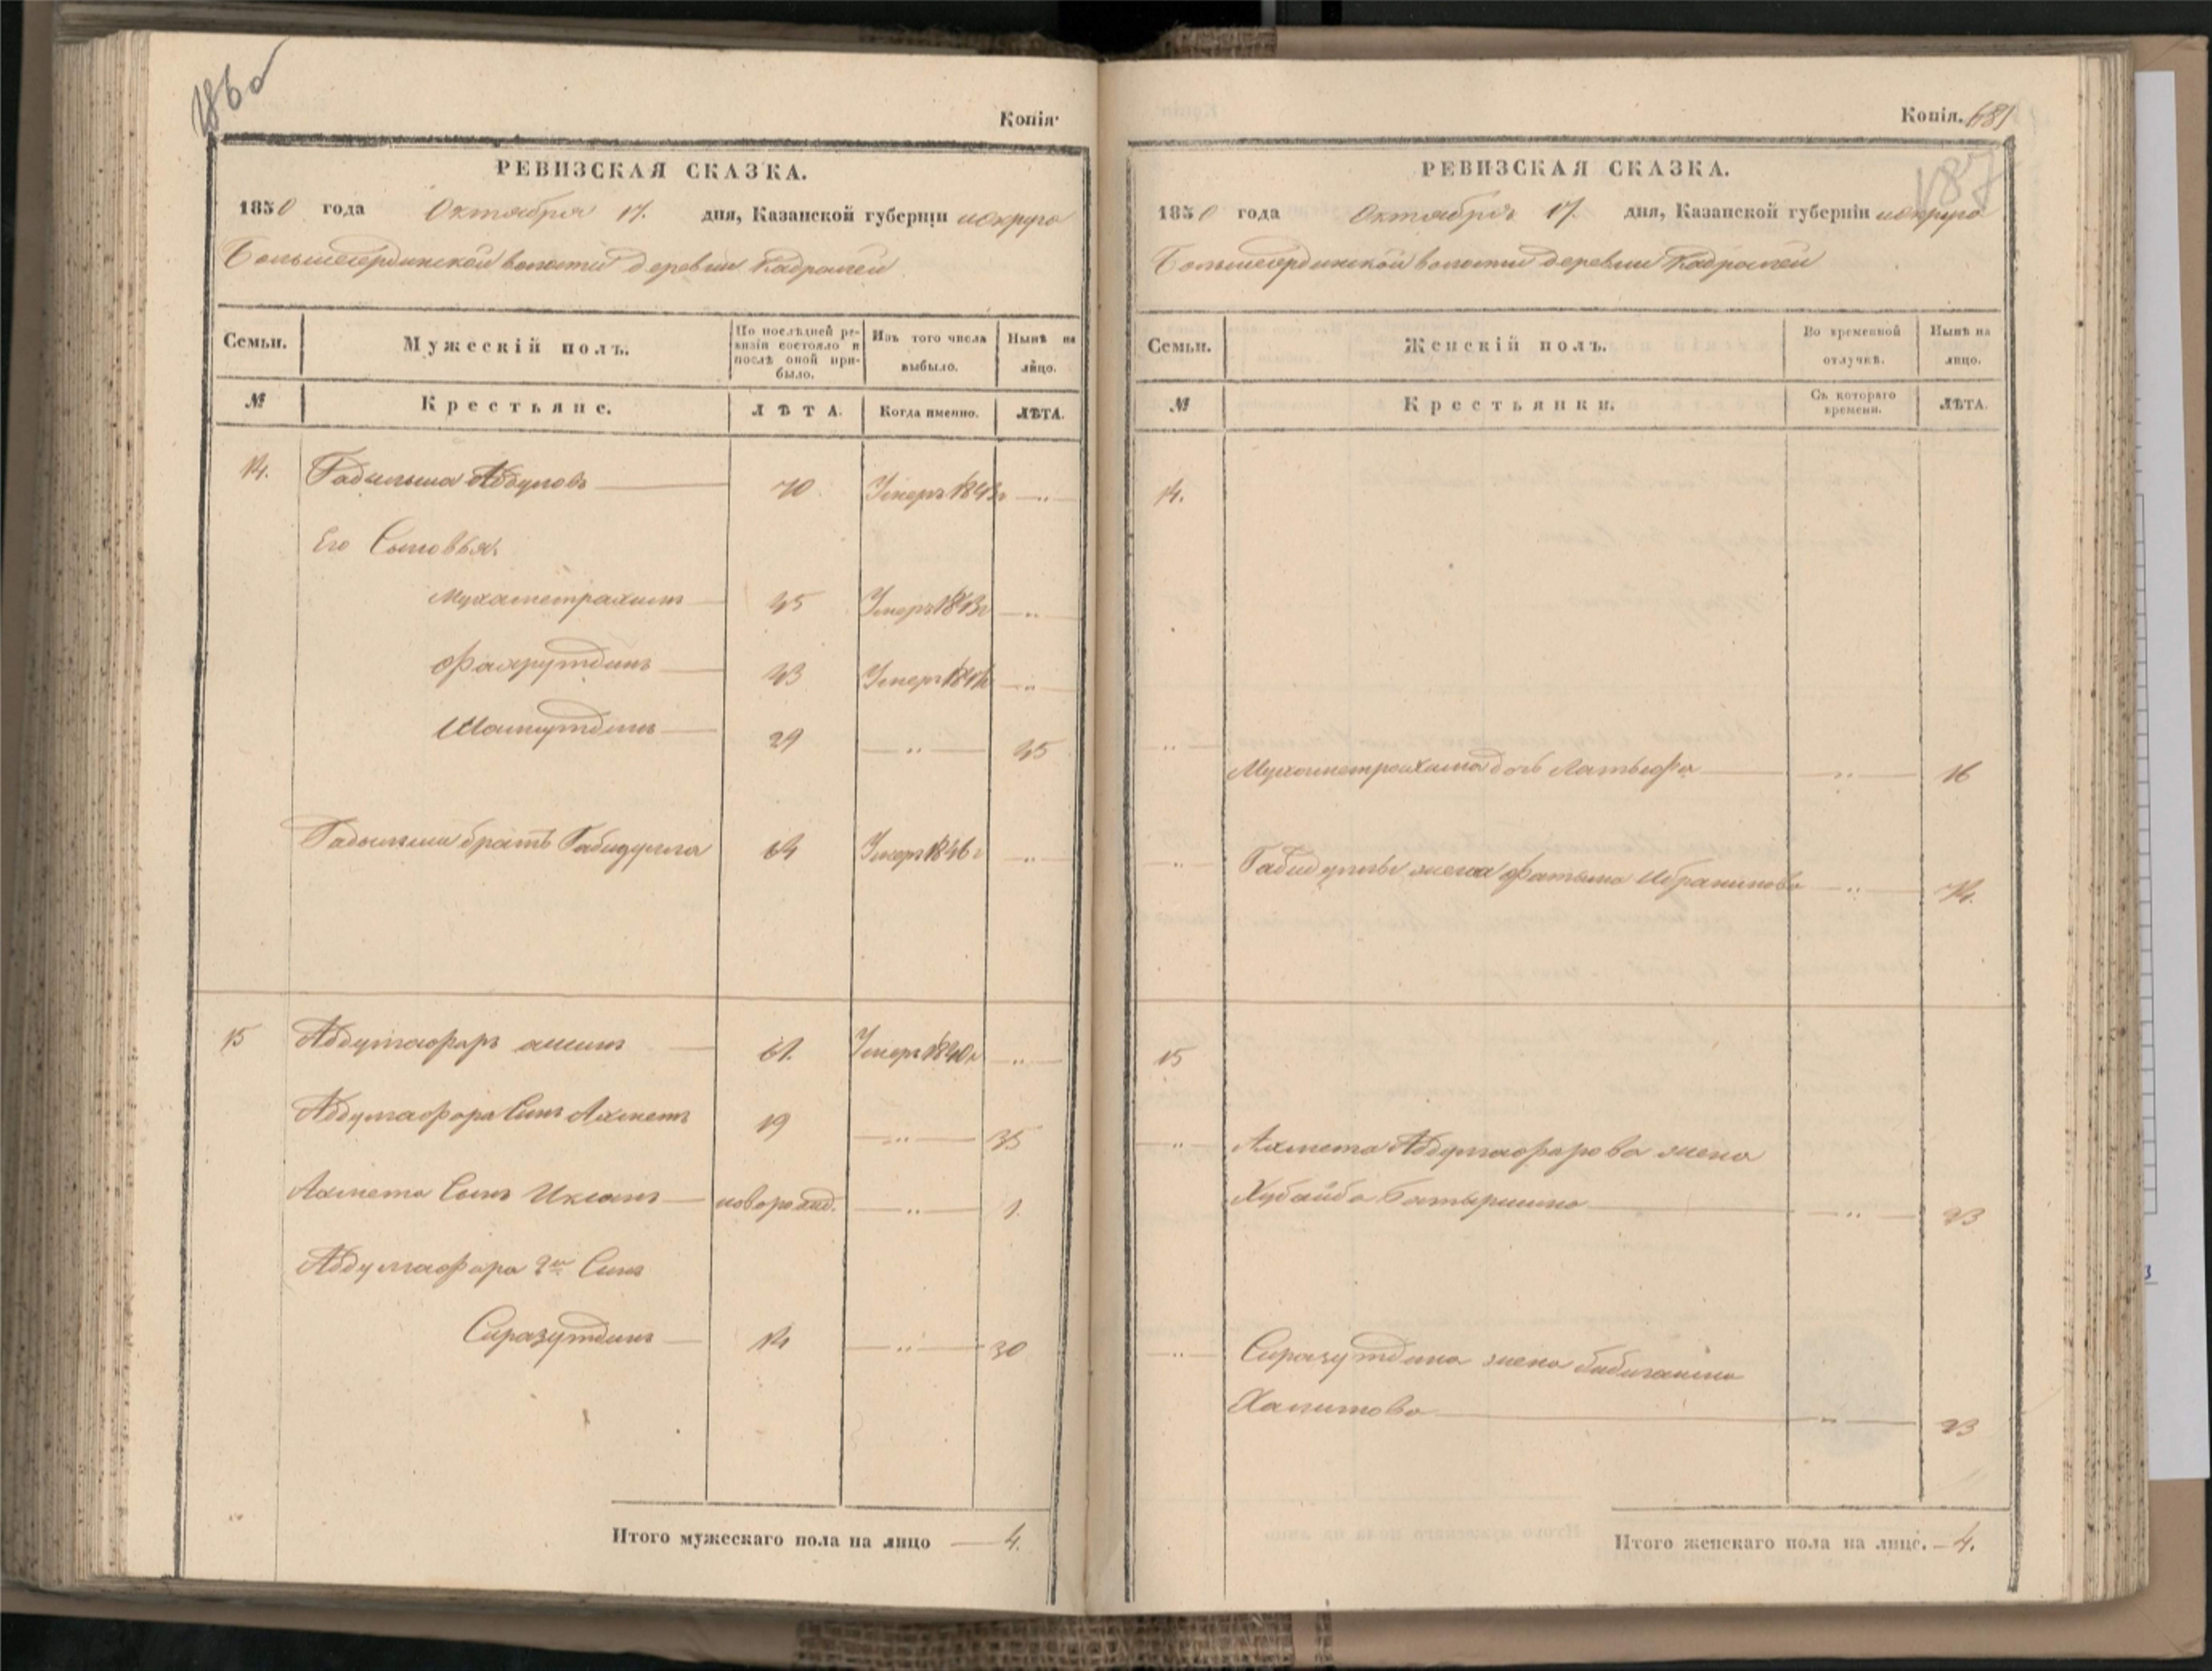 186 об
Копія.
РЕВИЗСКАЯ СКАЗКА.
1850 года Октября 17. дня, Казанской губерніи и округа
Большеатринской волости деревни Кадралей
Семьи. Мужескій полъ. По послѣдней ревизіи состояло и послѣ оной прибыло. Изъ того числа выбыло. Нынѣ на лицо.
№ Крестьяне. ЛѢТА. Когда именно. ЛѢТА.
14. Гадильша Абдуловъ 70. Умеръ 1843г "
Его Сыновья.
Мухаметрахимъ 45 Умеръ 1843г "
Фахрутдинъ 43 Умеръ "
29 " 45
Гадильши братъ Габидулла 64 Умеръ 1846г "
15 Абдулгафаръ 61. Умеръ 1840г "
Абдулгафара Сынъ Ахметъ 19 " 35
Ахмета Сынъ Иксанъ новорожд. " 1.
Абдулгафара 2й Сынъ
Сиразутдинъ 14 " 30
Итого мужескаго пола на лицо 4.
Копія. 681
187
РЕВИЗСКАЯ СКАЗКА.
1850 года Октября 17. дня, Казанской губерніи и округа
волости деревни Кадралей
Семьи. Женскій полъ. Во временной отлучкѣ. Нынѣ на лицо.
№ Крестьянки. Съ котораго времени. ЛѢТА.
14.
" Мухаметрахима дочь Латыфа " 16
" Габидуллы жена Фатыма Ибрагимова " 74.
15
" Ахмета Абдулгафарова жена
Хубайба Батыршина " 23
" Сиразутдина жена
Халитова " 23
Итого женскаго пола на лицо. 4.